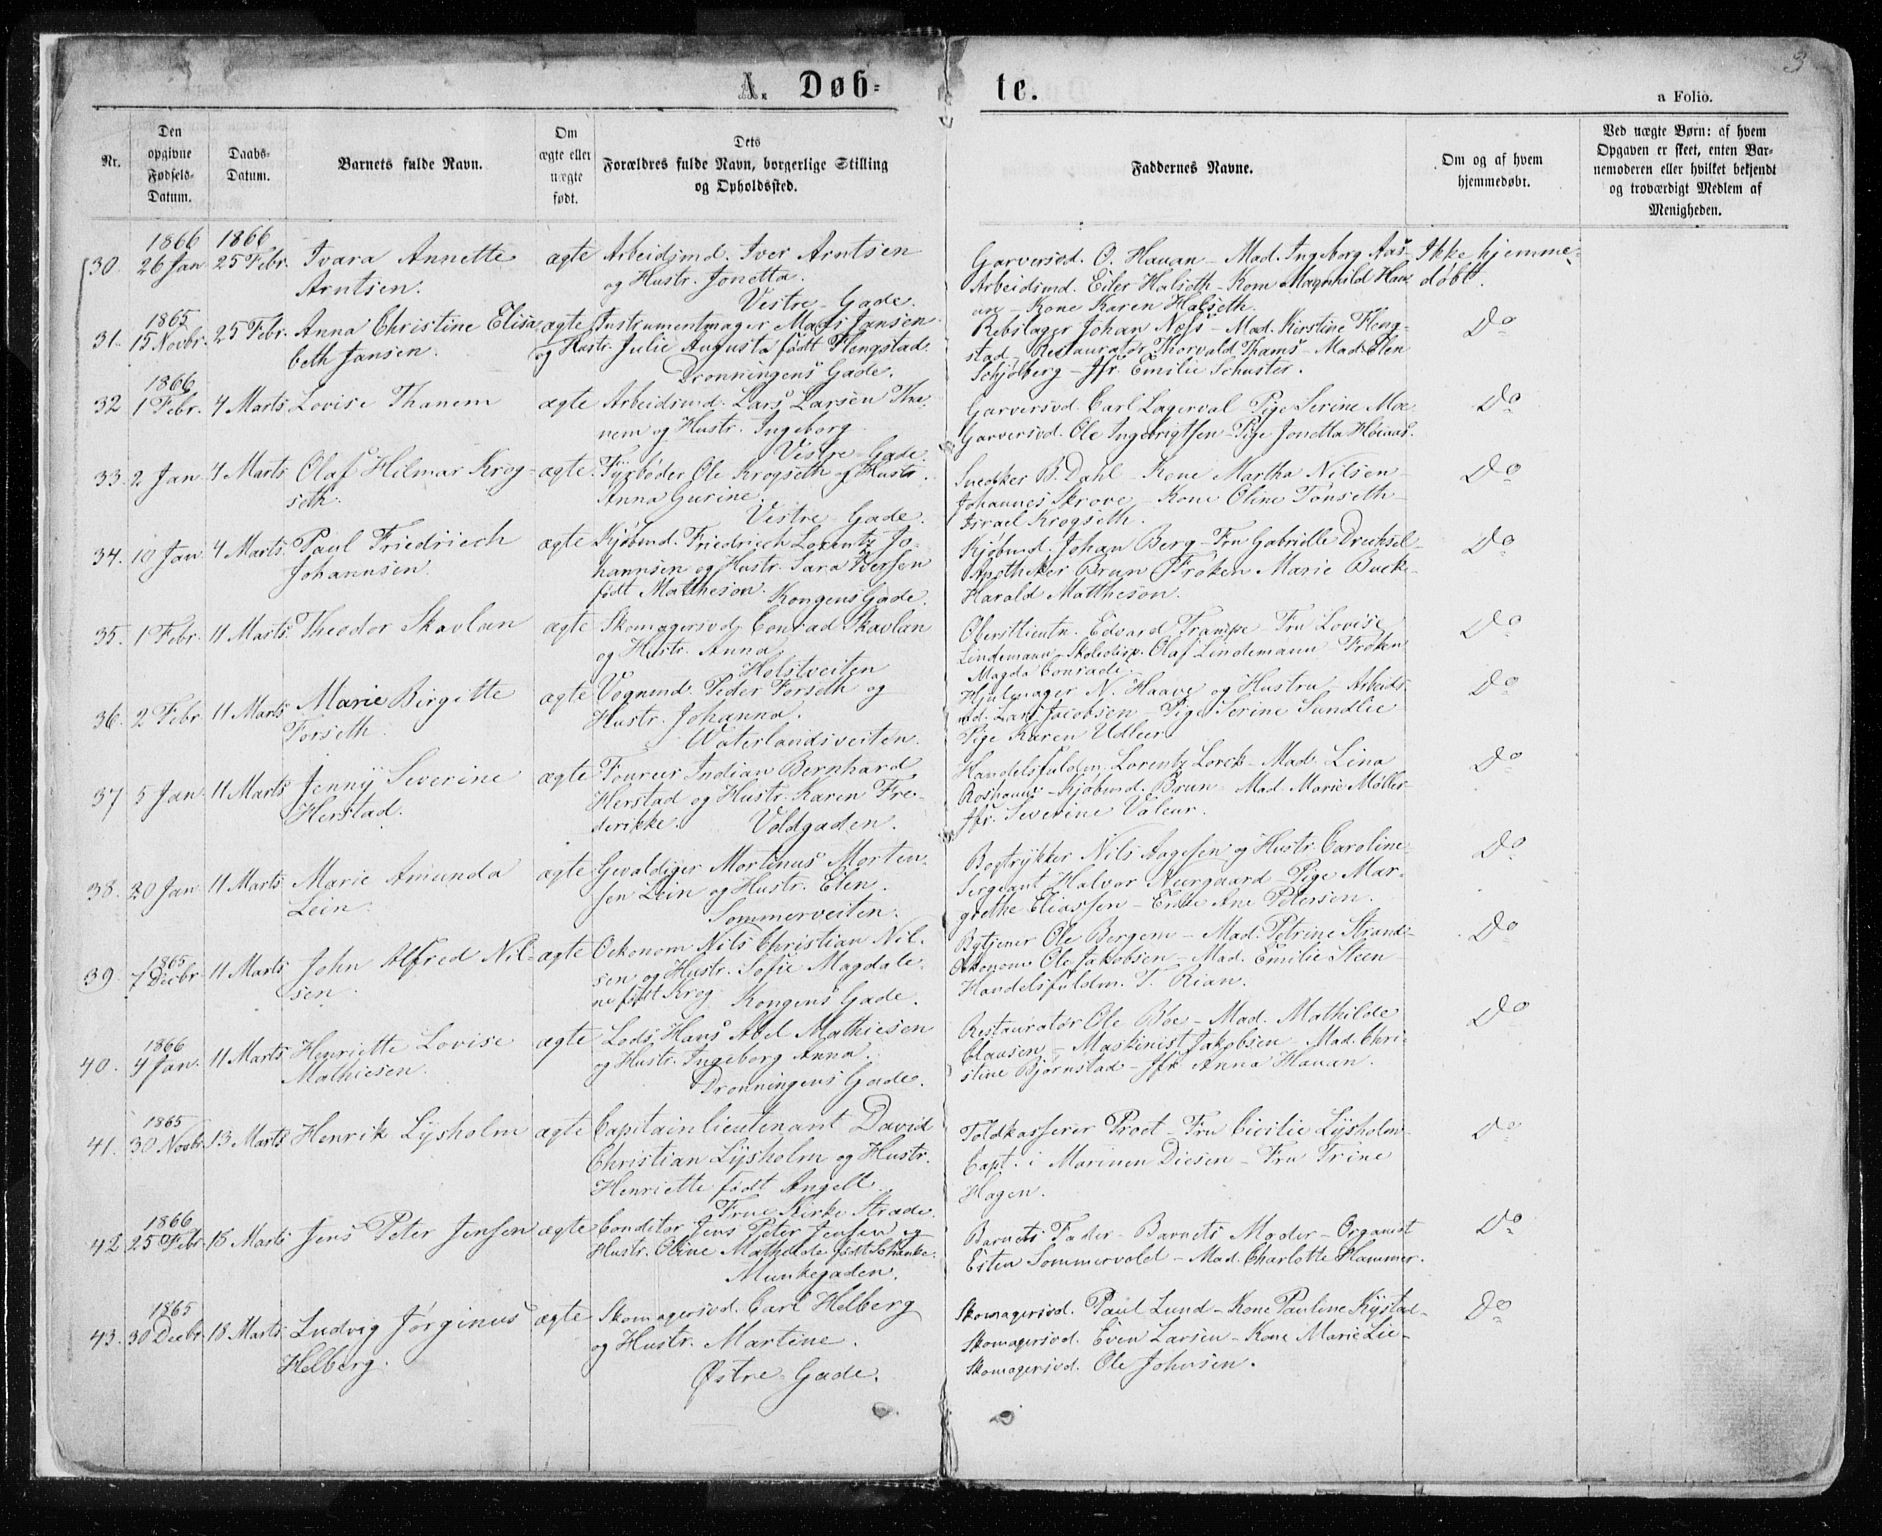 3
A. Døb= te.
a Folio.
Nr.
Den opgivne Fødsels-Datum.
Daabs-Datum.
Barnets fulde Navn.
Om ægte eller uægte født.
Dets Forældres fulde Navn, borgerlige Stilling og Opholdssted.
Faddernes Navne.
Om og af hvem hjemmedøbt.
Ved uægte Børn: af hvem Opgaven er skeet, enten Barnemoderen eller hvilket bekjendt og troværdigt Medlem af Menigheden.
1866 1866
30. 26 Jan 25 Febr. Ivara Annette ægte Arbeidsmd. Iver Arntsen Garversvd. O. Hauan – Mad. Ingeborg Aas- Ikke hjemme-
Arntsen. og Hustr. Jonetta. Arbeidsmd. Eiler Halseth – Kone Magnhild Hau- døbt.
Vestre-Gade. an – Kone Karen Halseth.
1865
31. 15 Novbr. 25 Febr. Anna Christine Elisa- ægte Instrumentmager Mads Jansen Rebslager Johan Næss – Mad. Kirstine Fleng- Do
beth Jansen. og Hustr. Julie Augusta født Flengstad. stad – Restauratør Thorvald Thams – Mad. Elen
Dronningens Gade. Schjølberg – Jfr. Emilie Schuster.
1866
32 1 Febr. 4 Marts Lovise Thanem ægte Arbeidsmd. Lars Larsen Tha- Garversvd. Carl Lagerval Pige Serine Moe Do
nem og Hustr. Ingeborg Garversvd. Ole Ingebrigtsen – Pige Jonetta Høiaas.
Vestre-Gade.
33. 2 Jan 4 Marts Olaf Hilmar Krog- ægte Fyrbøder Ole Krogseth og Hustr. Snedker B. Dahl – Kone Martha Nilsen Do
seth. Anna Gurine. Johannes Skrove – Kone Oline Tønseth –
Vestre-Gade. Israel Krogseth.
34. 10 Jan 4 Marts. Paul Friedriech ægte Kjøbmd. Friedriech Lorentz Jo- Kjøbmd. Johan Berg – Fru Gabrielle Drechsel – Do
Johannsen. hannsen og Hustr. Sara Iversen Apotheker Brun Frøken Marie Bucke –
født Matheson. Kongens Gade. Harald Mattheson.
35. 1 Febr. 11 Marts. Theodor Skavlan ægte Skomagersvd. Conrad Skavlan Oberstlieutn. Edvard Trampe – Fru Lovise Do
og Hustr. Anna Lindemann – Skoledisp. Olaf Lindemann Frøken
Holstveiten Magda Conradi.
36. 2 Febr 11 Marts Marie Birgitte ægte Vognmd. Peder Forseth og Hjulmager N. Haave og Hustru – Arbeids- Do
Forseth. Hustr. Johanna. md. Lars Jacobsen – Pige Serine Sundlie
Waterlandsveiten. Pige Karen Udlier
37 5 Jan 11 Marts Jenny Severine ægte Fourer Indian Bernhard Handelsfuldm. Lorentz Lorck – Mad. Lina Do
Herstad. Herstad og Hustr. Karen Fre- Roshauw – Kjøbmd. Brun – Mad. Marie Møller –
derikke. Voldgaden. Jfr. Severine Valeur.
38. 20 Jan 11 Marts Marie Amunda ægte Gevaldiger Mortinus Morten- Bogtrykker Nils Aagesen og Hustr. Caroline – Do
Lein. sen Lein og Hustr. Elen. Sergeant Halvor Neergaard – Pige Mar-
Sommerveiten. grethe Eliassen – Enke Ane Petersen.
1865
39. 7 Decbr 11 Marts John Alfred Nil- ægte Oekonom Nils Christian Nil- Bytjener Ole Bergem – Mad. Petrine Strand – Do
sen. sen og Hustr. Sofie Magdale- Oekonom Ole Jakobsen – Mad. Emilie Steen –
ne født Krog. Kongens Gade. Handelsfuldm. T. Rian.
1866
40. 4 Jan. 11 Marts Henriette Lovise ægte Lods Hans Abel Mathiesen Restauratør Ole Bøe – Mad. Mathilde Do
Mathiesen. og Hustr. Ingeborg Anna. Clausen – Maskinist Jakobsen Mad. Chri-
Dronningens Gade. stine Bjørnstad – Jfr Anna Hauan.
1865
41. 30 Novbr 13 Marts Henrik Lysholm ægte Capitainlieutenant David Toldkasserer Proet – Fru Cicilie Lysholm – Do
Christian Lysholm og Hustr. Capt. i Marinen Diesen – Fru Trine
Henriette født Angell. Hagen.
Frue Kirke Stræde.
1866
42 25 Febr. 18 Marts Jens Peter Jensen ægte Conditor Jens Peter Jensen og Barnets Fader – Barnets Moder – Organist Do
Hustr. Oline Mathilde født Schanke. Esten Sommervold – Mad. Charlotte Hammer.
Munkegaden.
1865
43. 30 Decbr. 18 Marts. Ludvig Jørginus ægte Skomagersvd. Carl Helberg Skomagersvd. Paul Lund – Kone Pauline Kystad – Do
Helberg. og Hustr. Martine. Skomagersvd. Even Larsen – Kone Marie Lie –
Østre-Gade. Skomagersvd. Ole Johnsen.